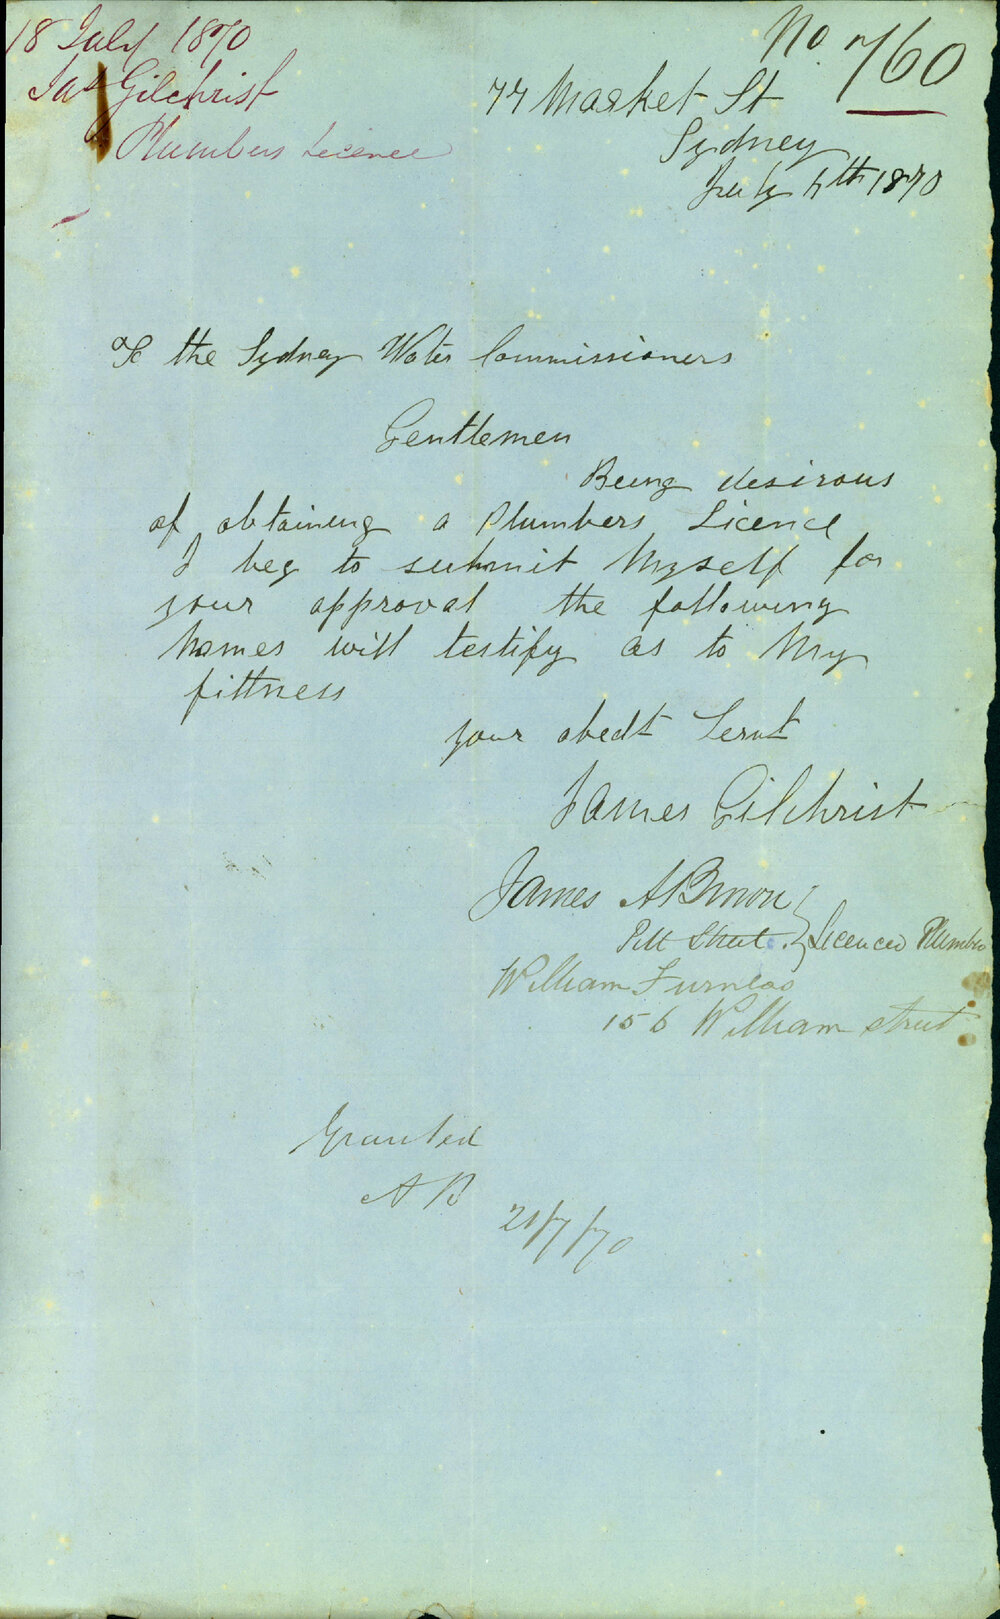 18 July 1870
Jas Gilchrist
Plumbers Licence
No. 760
77 Market St
Sydney
July 1870
To the Sydney Water Commissioners
Gentlemen
Being desirous
of obtaining a Plumbers Licence
I beg to submit Myself for
your approval the following
Names will testify as to My
fittness
your obedt Servt
James Gilchrist
James A Brown
Pitt Street. } Licenced Plumbers
William Furness
156 William street
Granted
A B
21/7/70